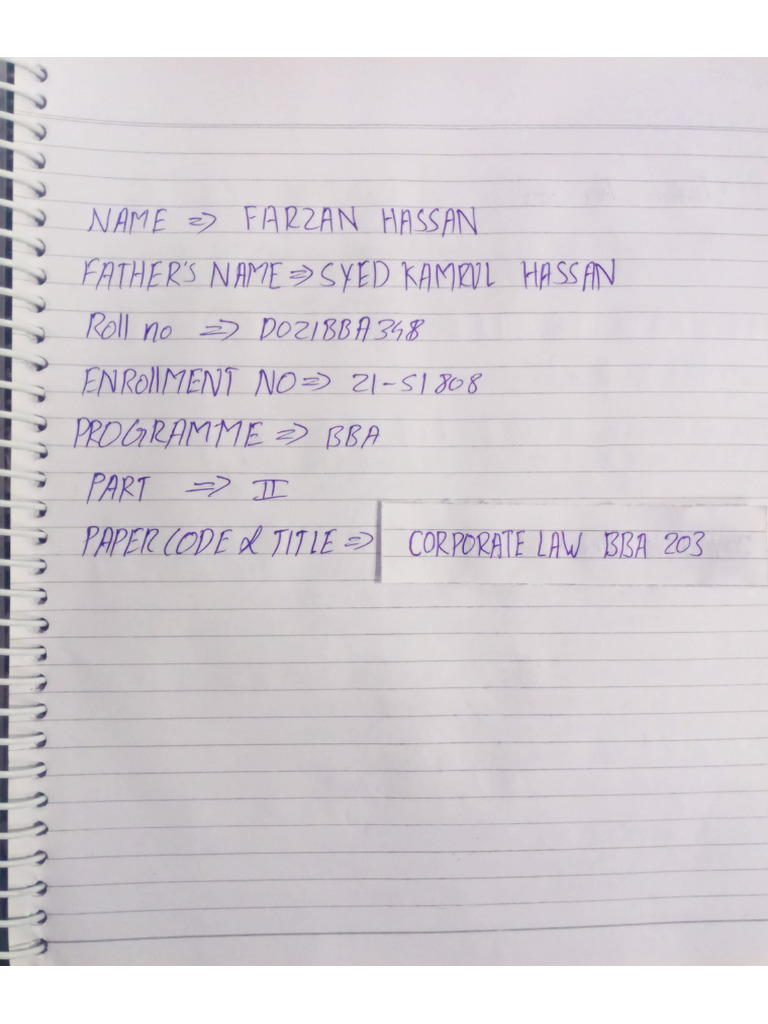 NAME => FARZAN HASSAN
FATHER'S NAME => SYED KAMRUL HASSAN
Roll no => DO21BBA348
ENRollMENT NO => 21-51808
PROGRAMME => BBA
PART => II
PAPER CODE & TITLE => CORPORATE LAW BBA 203